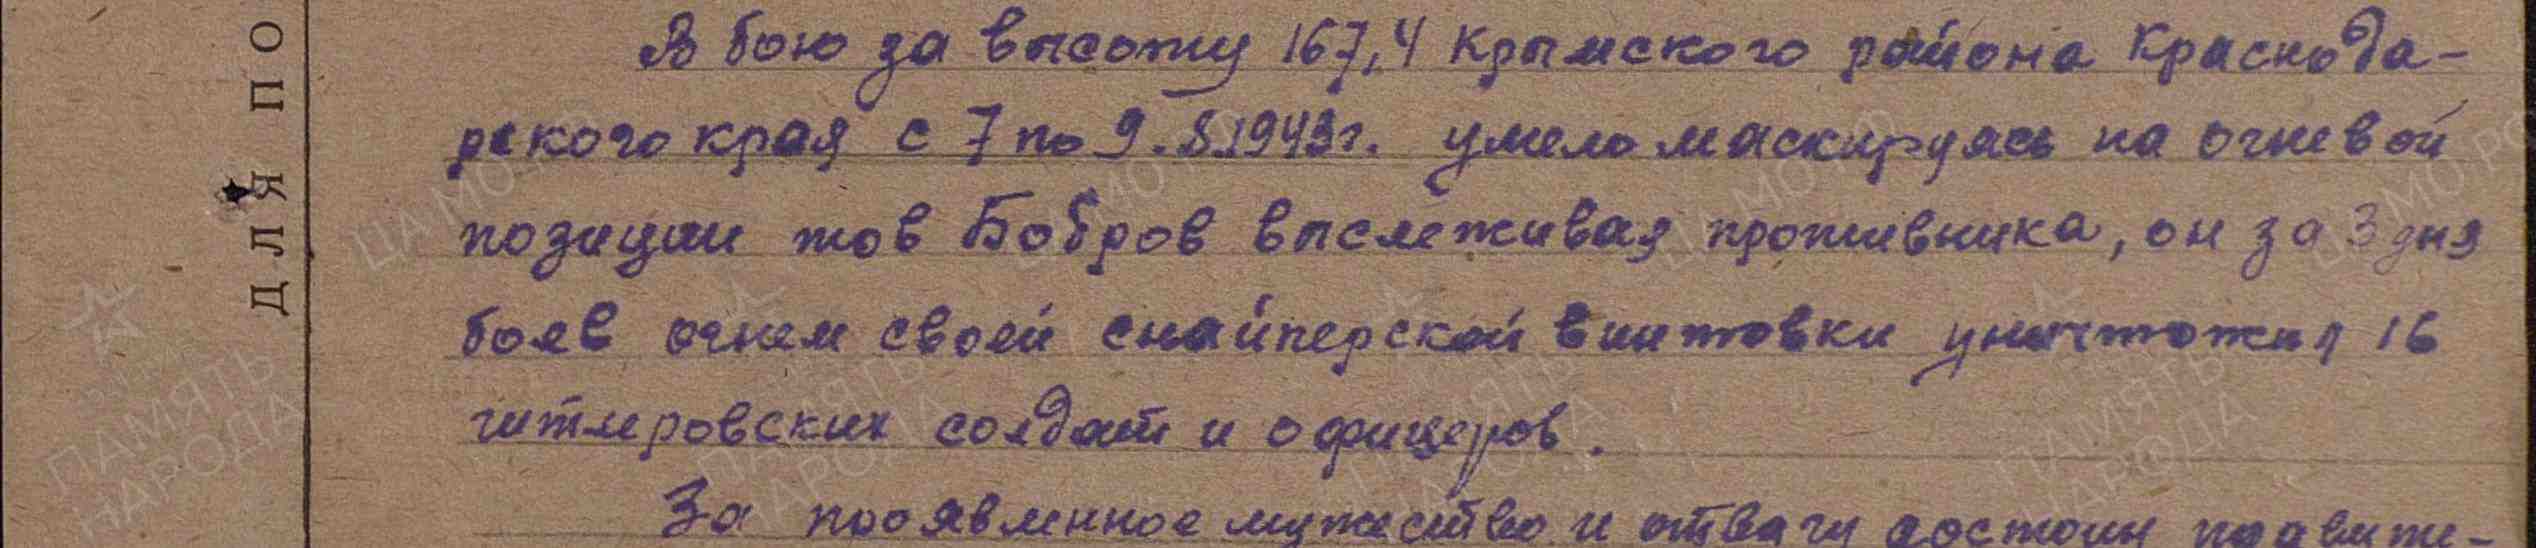 В бою за высоту 167,4 Крымского района Краснода-
рского края с 7 по 9.8.1943г. умело маскируясь на огневой
позиции тов Бобров выслеживая противника, он за 3 дня
боев огнем своей снайперской винтовки уничтожил 16
гитлеровских солдат и офицеров.
За проявленное мужество и отвагу достоин правите-
ДЛЯ ПО
ЦАМО РФ
ПАМЯТЬ
НАРОДА